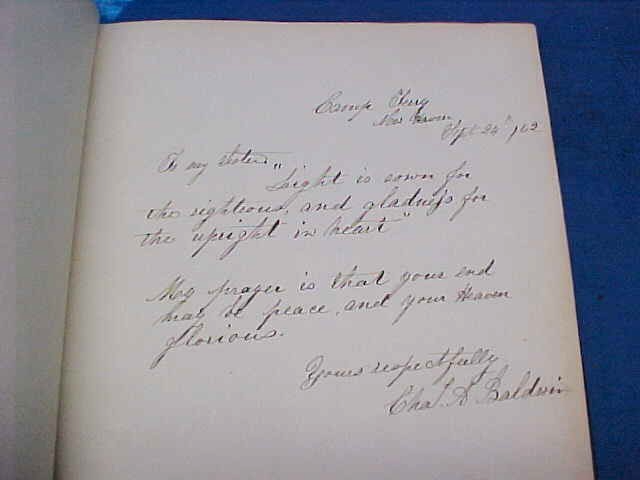 Camp Terry
New Haven,
Sept 24" /62
To my sister "
Light is sown for
the righteous, and gladness for
the upright in heart"
May prayer is that your end
may be peace, and your Heaven
glorious.
Yours respectfully
Chas. A Baldwin